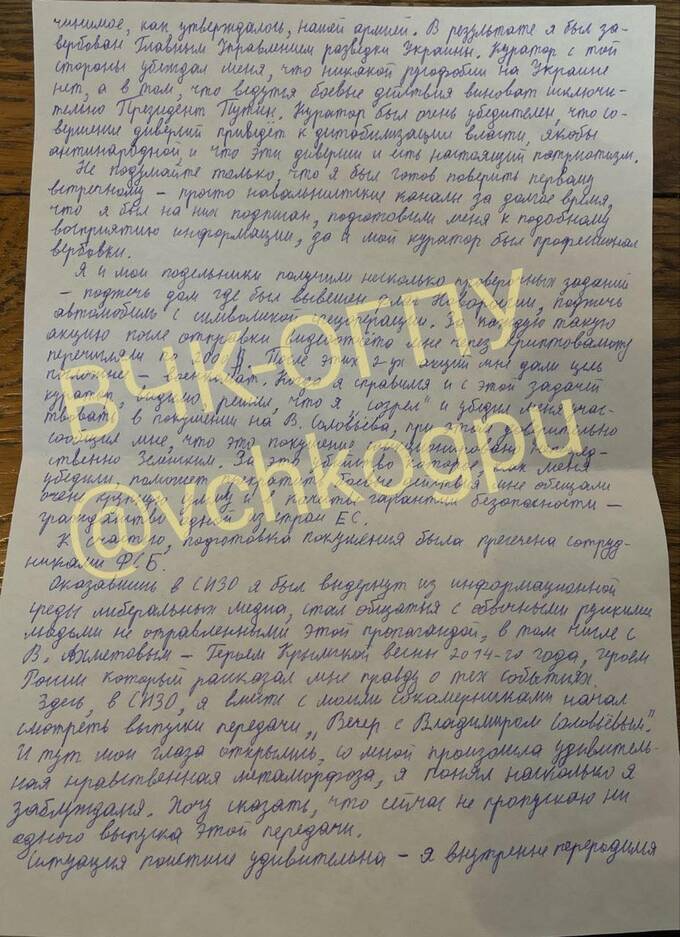 чинимое, как утверждалось, нашей армией. В результате я был за-
вербован Главным Управлением разведки Украины. Куратор с той
стороны убеждал меня, что никакой русофобии на Украине
нет, а в том, что ведутся боевые действия виноват исключи-
тельно Президент Путин. Куратор был очень убедителен, что со-
вершение диверсий приведет к дистабилизации власти, якобы
антинародной, и что эти диверсии и есть настоящий патриотизм.
Не подумайте только, что я был готов поверить первому
встречному – просто навальнистские каналы за долгое время,
что я был на них подписан, подготовили меня к подобному
восприятию информации, да и мой куратор был профессионал
вербовки.
Я и мои подельники получили несколько проверочных заданий
– поджечь дом где был вывешен флаг Новороссии, поджечь
автомобиль с символикой спецоперации. За каждую такую
акцию после отправки видеоотчёта мне через криптовалюту
перечисляли по 200 $. После этих 2-ух акций мне дали цель
– военкомат. Когда я справился и с этой задачей
куратор, видимо, решил, что я „созрел" и убедил меня учас-
твовать в покушении на В. Соловьева, при этом доверительно
сообщил мне, что это покушение непосред-
ственно Зеленским. За это убийство которое, как меня
убедили, поможет прекратить боевые действия мне обещали
очень крупную сумму и в качестве гарантии безопасности –
гражданство одной из стран ЕС.
К счастью, подготовка покушения была пресечена сотруд-
никами ФСБ.
Оказавшись в СИЗО я был выдернут из информационной
среды либеральных медиа, стал общаться с обычными русскими
людьми не отравленными этой пропагандой, в том числе с
В. Ахметовым – Героем Крымской весны 2014-го года, героем
России который рассказал мне правду о тех событиях.
Здесь, в СИЗО, я вместе с моими сокамерниками начал
смотреть выпуски передачи „Вечер с Владимиром Соловьёвым".
И тут мои глаза открылись, со мной произошла удивитель-
ная нравственная метаморфоза, я понял насколько я
заблуждался. Хочу сказать, что сейчас не пропускаю ни
одного выпуска этой передачи.
Ситуация поистине удивительна – я внутренне переродился
ВЧК-ОГПУ
@vchkogpu